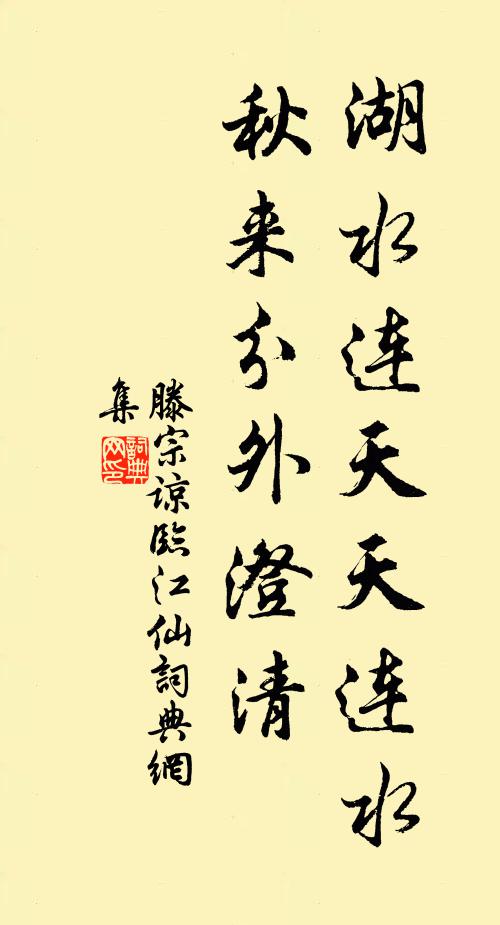 湖水连天天连水
秋来分外澄清
滕宗谅臨江仙詞典網
集
詞典网印